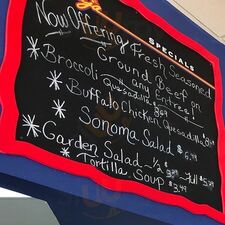 SPECIALS
Now Offering Fresh Seasoned
Ground Beef on
any Entree!
* Broccoli Quesadilla
* Buffalo Chicken Quesadilla
* Sonoma Salad $6.99
* Garden Salad - 1/2 Full
* Tortilla Soup $3.99